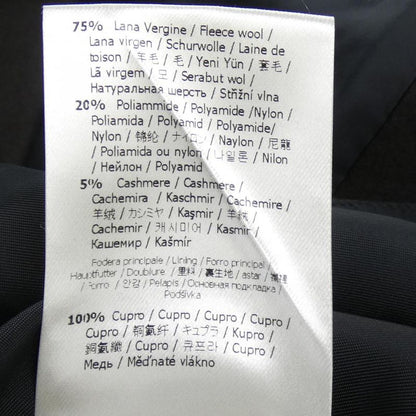 75% Lana Vergine / Fleece wool /
Lana virgen / Schurwolle / Laine de
toison / 羊毛 / 毛 / Yeni Yün / 套毛 /
Lã virgem / 모 / Serabut wol /
Натуральная шерсть / Střižní vlna
20% Poliammide / Polyamide /Nylon /
Poliamida / Polyamid / Polyamide/
Nylon / 锦纶 / ナイロン / Naylon / 尼龍
/ Poliamida ou nylon / 나일론 / Nilon
/ Нейлон / Polyamid
5% Cashmere / Cashmere /
Cachemira / Kaschmir / Cachemire /
羊绒 / カシミヤ / Kaşmir / 羊絨 /
Cachemir / 캐시미어 / Kasmir /
Кашемир / Kašmír
Fodera principale / Lining / Forro principal /
Hauptfutter / Doublure / 里料 / 裏生地 / astar /
Forro / 안감 / Pelapis / Основная подкладка /
Podšívka
100% Cupro / Cupro / Cupro / Cupro /
Cupro / 铜氨纤 / キュプラ / Kupro /
銅氨纖 / Cupro / 큐프라 / Cupro /
Медь / Měďnaté vlákno